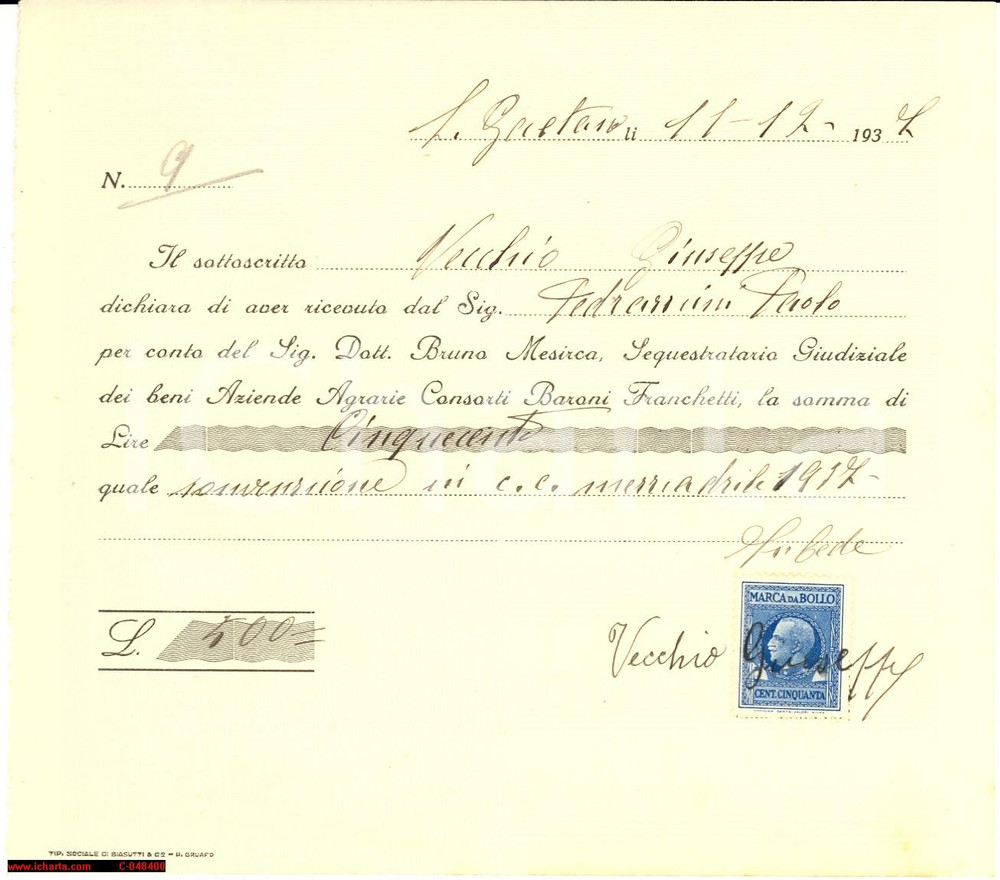 S. Gaetano li 11-12- 1937
N. 9
Il sottoscritto Vecchio Giuseppe
dichiara di aver ricevuto dal Sig. Pedrazzini Paolo
per conto del Sig. Dott. Bruno Mesirca, Sequestratario Giudiziale
dei beni Aziende Agrarie Consorti Baroni Franchetti, la somma di
Lire Cinquecento
quale sovvenzione in c.c. mezzadrile 1937-
In fede
L. 500=
MARCA DA BOLLO
Vecchio Giuseppe
CENT. CINQUANTA
TIP. SOCIALE DI BIASUTTI & CO - P. GRUARO
www.icharta.com C-048400
icharta